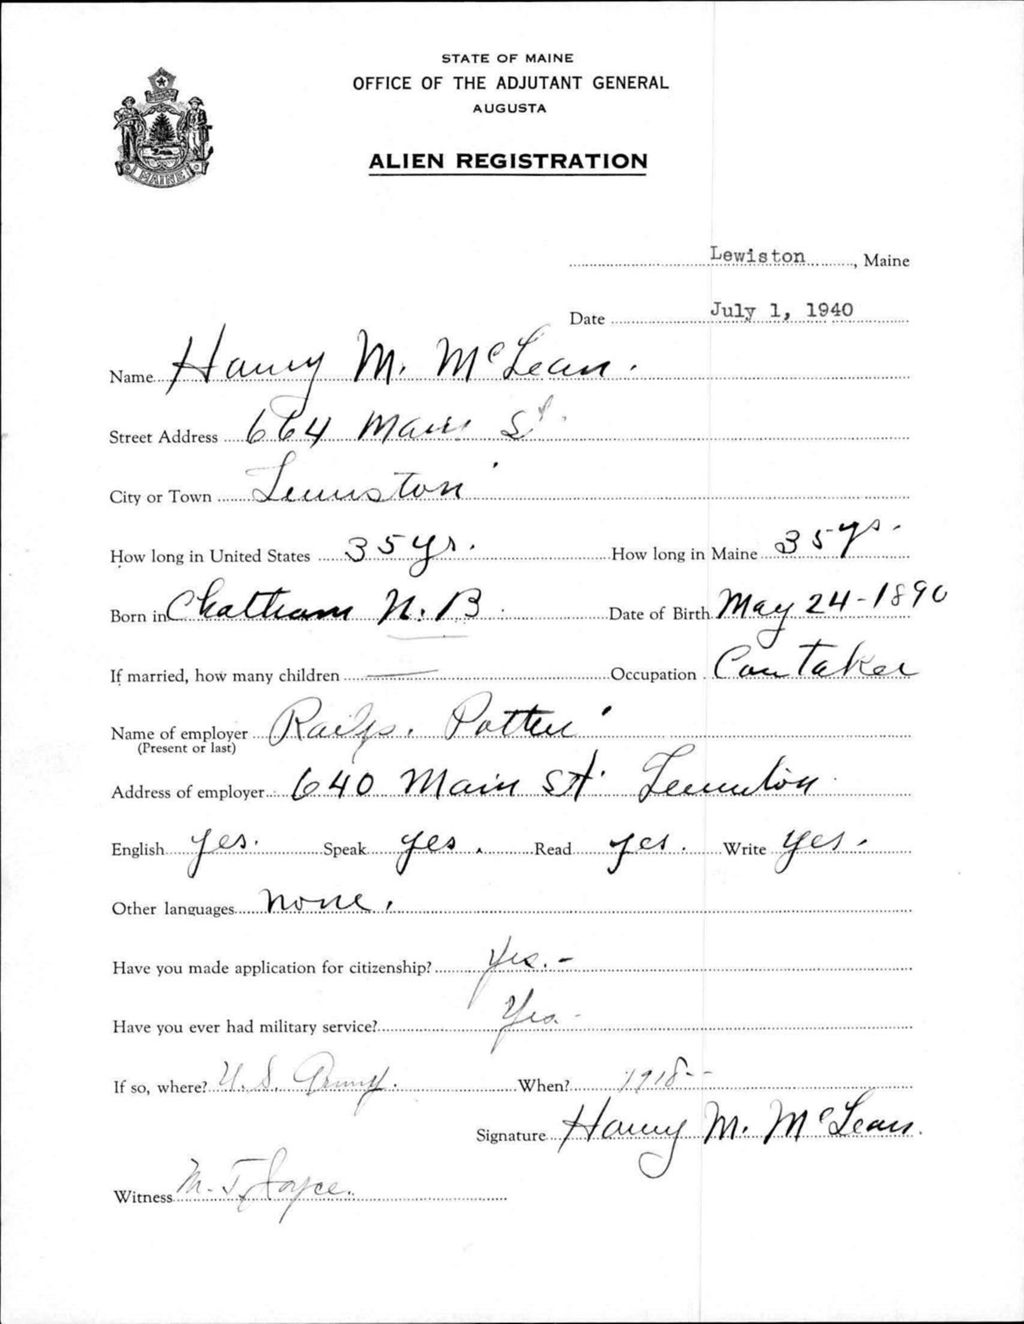 STATE OF MAINE
OFFICE OF THE ADJUTANT GENERAL
AUGUSTA
ALIEN REGISTRATION
MAINE
Lewiston, Maine
Date July 1, 1940
Name Harry M. McLean.
Street Address 664 Main St.
City or Town Lewiston
How long in United States 35 yr. How long in Maine 35 yr.
Born in Chatham N.B. Date of Birth May 24-1890
If married, how many children — Occupation Caretaker
Name of employer Potter
(Present or last)
Address of employer 640 Main St. Lewiston.
English yes. Speak yes. Read yes. Write yes.
Other languages none.
Have you made application for citizenship? Yes.-
Have you ever had military service? Yes-
If so, where? U.S. Army. When? 1918--
Signature Harry M. McLean.
Witness M. T. Joyce.